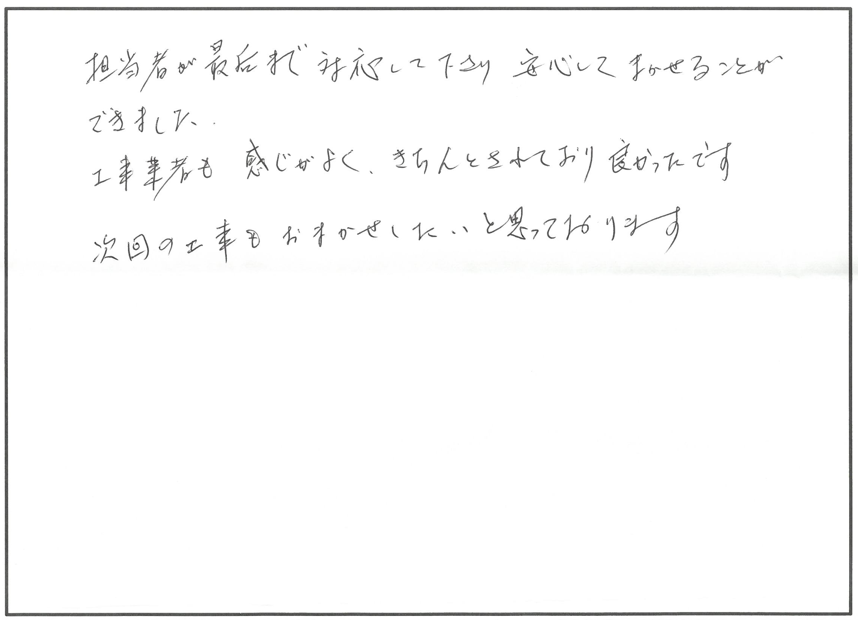 担当者が最后まで対応して下さり 安心してまかせることが
できました.
工事業者も 感じがよく、きちんとされており良かったです
次回の工事も おまかせしたいと思っております